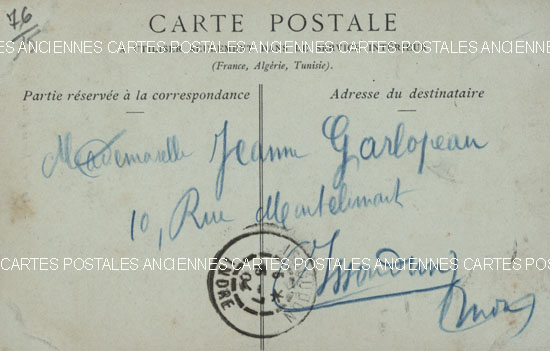 76
CARTE POSTALE
CARTES POSTALES ANCIENNES CARTES POSTALES ANCIENNES CARTES POSTALES ANCIENNES
(France, Algérie, Tunisie).
Partie réservée à la correspondance
Adresse du destinataire
Mademoiselle Jeanne Garlopeau
10, Rue Montelimart
CARTES POSTALES ANCIENNES CARTES POSTALES ANCIENNES CARTES POSTALES ANCIENNES
Issoudun
Indre